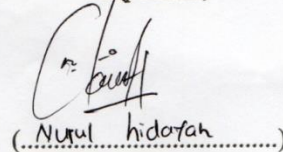 ( Nurul hidayah )